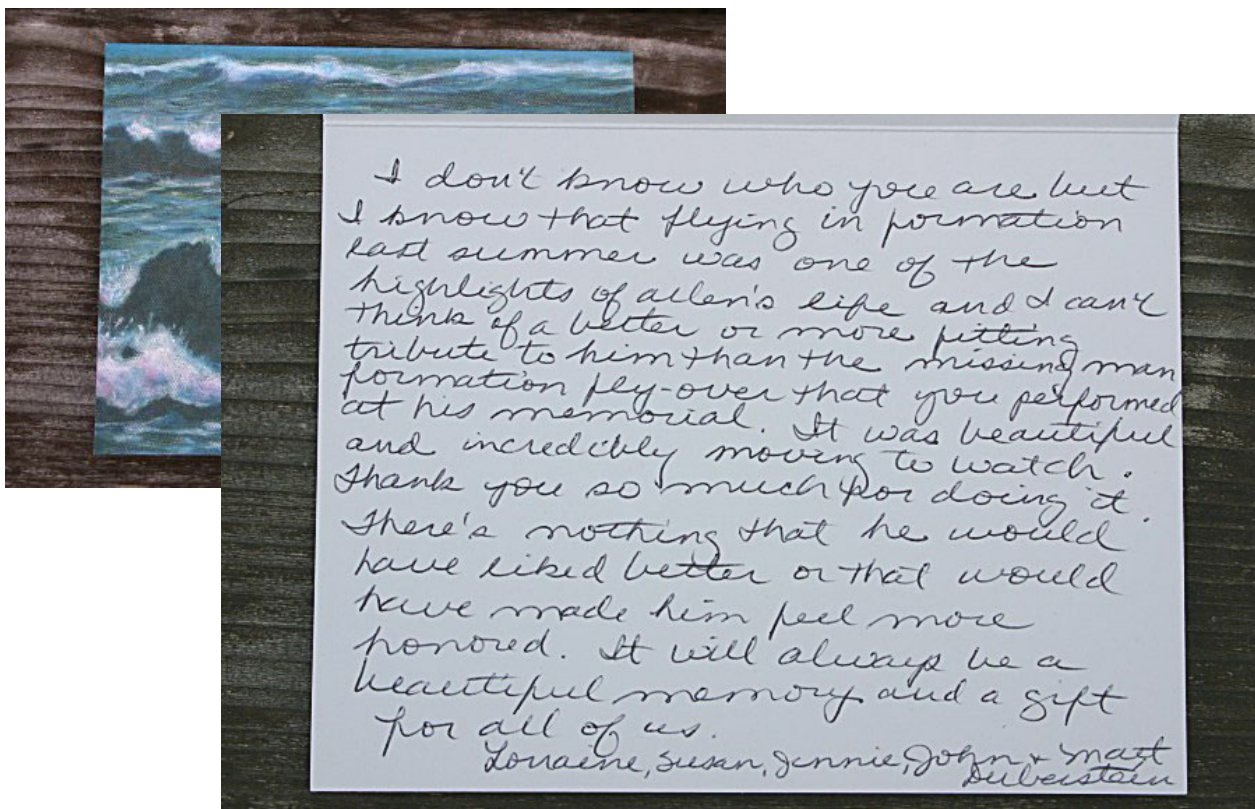 I don't know who you are but
I know that flying in formation
last summer was one of the
highlights of allen's life and I can't
think of a better or more fitting
tribute to him than the missing man
formation fly-over that you performed
at his memorial. It was beautiful
and incredibly moving to watch.
Thank you so much for doing it.
There's nothing that he would
have liked better or that would
have made him feel more
honored. It will always be a
beautiful memory and a gift
for all of us.
Lorraine, Susan, Jennie, John + Matt
Duberstein